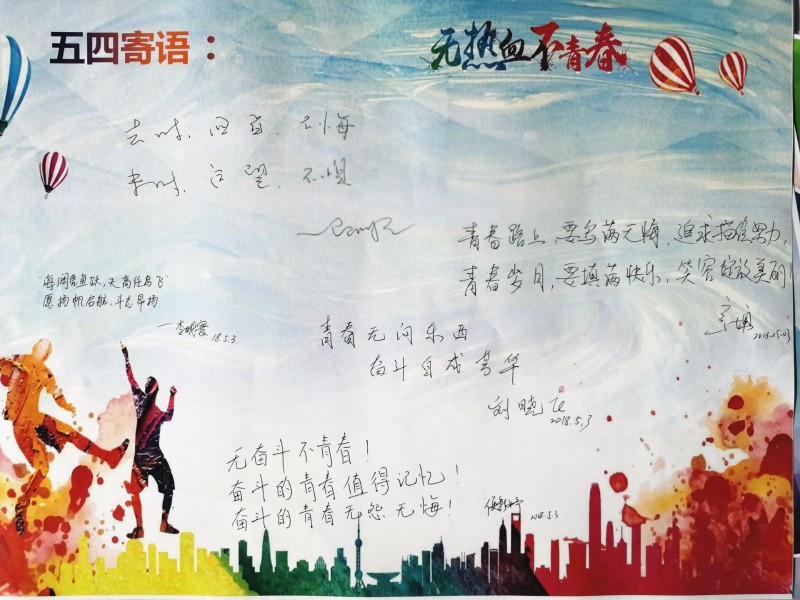 五四寄语：
无热血不青春
去时，回首，不悔
来时，远望，不惧
青春路上，要写满无悔，追求描绘努力，
青春岁月，要填满快乐，笑容绽放美丽！
2018.05.03
"海阔凭鱼跃，天高任鸟飞"
愿扬帆启航，斗志昂扬
18.5.3.
青春无问东西
奋斗自成芳华
刘晓飞
2018.5.3
无奋斗不青春！
奋斗的青春值得记忆！
奋斗的青春无怨无悔！
2018.5.3